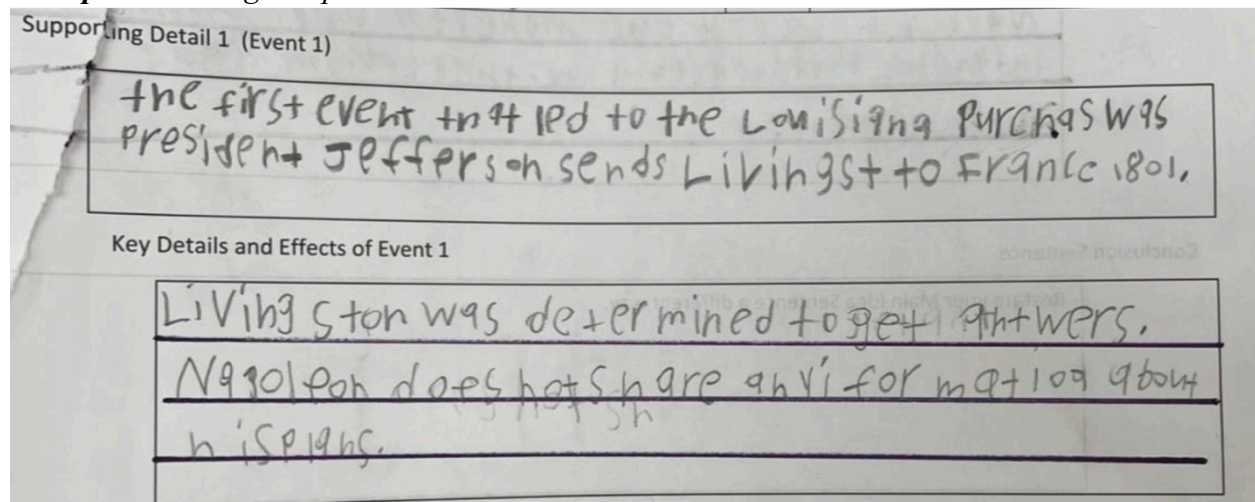 Supporting Detail 1 (Event 1)
the first event that led to the Louisiana Purchas was
President Jefferson sends Livingst to France 1801.
Key Details and Effects of Event 1
Livingston was determined to get antwers.
Nagoleon does not share anyiformation about
hisplans.
Conclusion Sentence